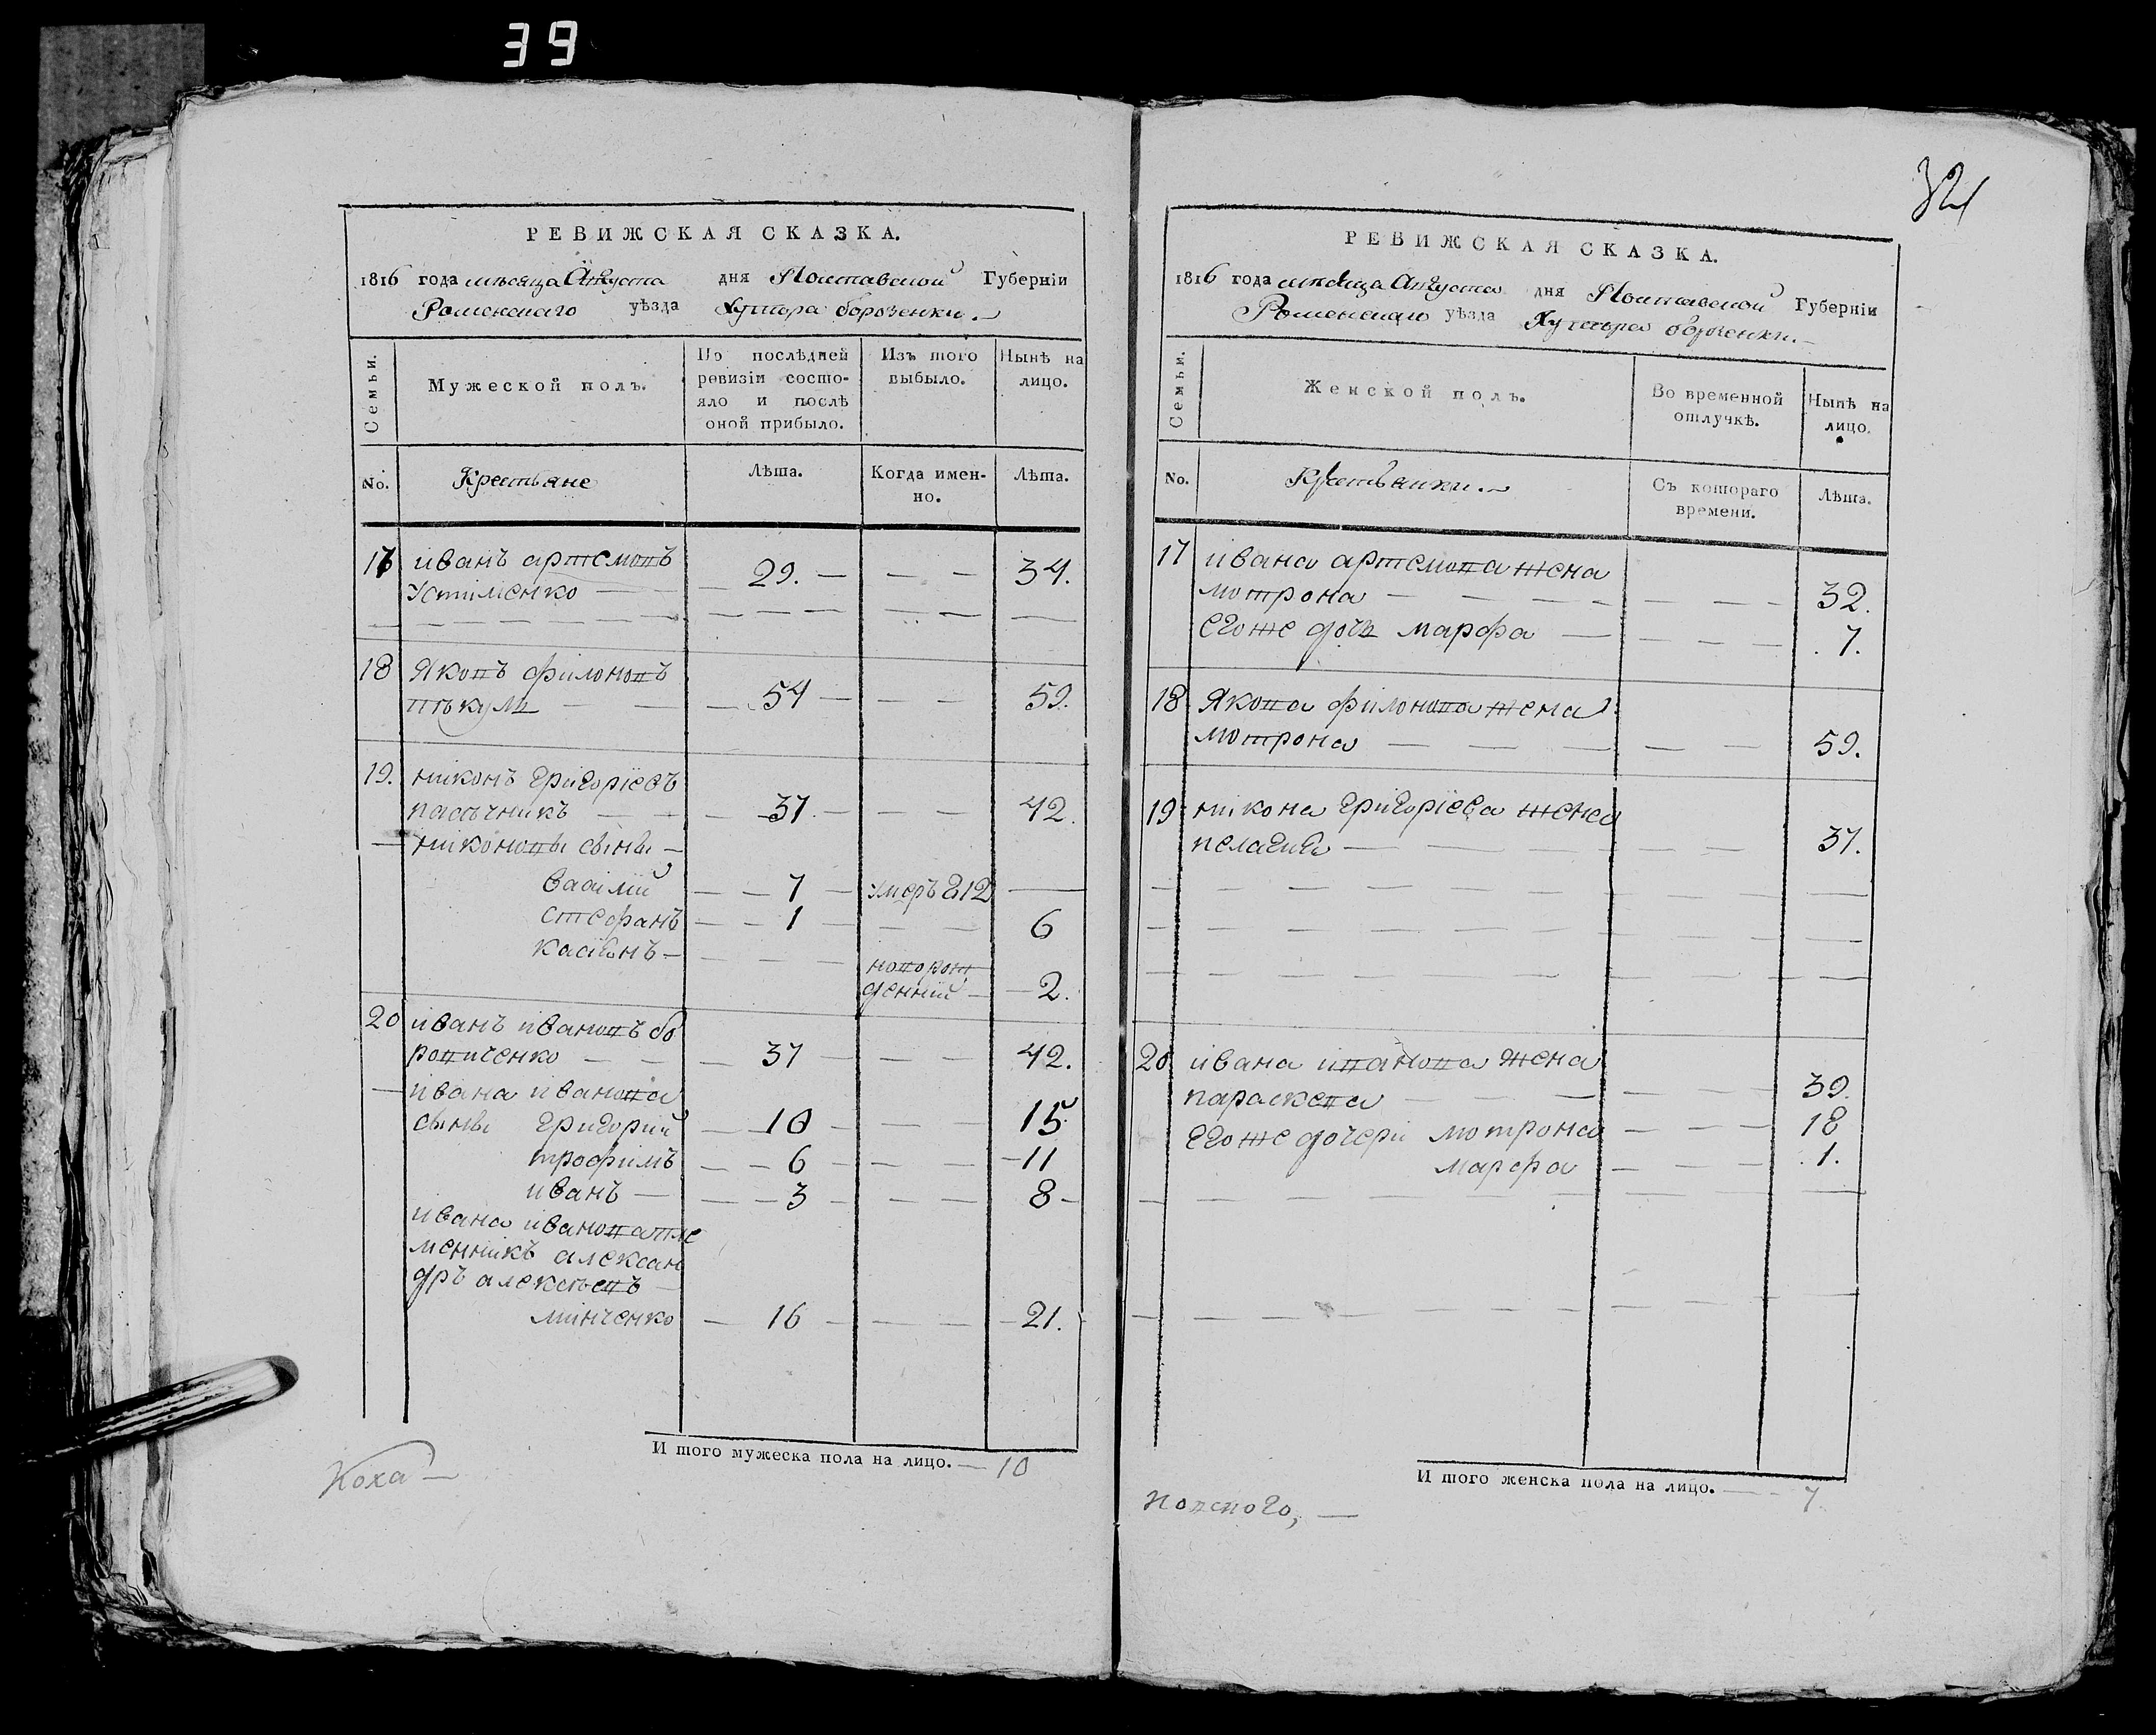 39
321
РЕВИЖСКАЯ СКАЗКА.
1816 года мѣсяца Августа дня Полтавской Губерніи
Роменского уѣзда Хутора борозенки.
Семьи.
Мужеской полъ.
По послѣдней ревизіи состо-
яло и послѣ
оной прибыло.
Изъ того
выбыло.
Нынѣ на
лицо.
No.
Крестьяне
Лѣта.
Когда имен-
но.
Лѣта.
17 иванъ артемовъ
Устименко 29. 34.
18 Яковъ филоновъ
пѣкуль 54 59.
19. никонъ григоріевъ
пасѣчникъ 37. 42.
никоновы сыны
василій 7 умеръ 812
стефанъ 1 6
касіянъ новорож
денній 2.
20 иванъ ивановъ бо
ровиченко 37 42.
ивана иванова
сыны григорий 10 15
трофимъ 6 11
иванъ 3 8
ивана иванова пле
менникъ алексан
дръ алексѣевъ
минченко 16 21.
И того мужеска пола на лицо. 10
Коха
РЕВИЖСКАЯ СКАЗКА.
1816 года мѣсяца Августа дня Полтавской Губерніи
Роменскаго уѣзда Хутора борозенки.
Семьи.
Женской полъ.
Во временной
отлучкѣ.
Нынѣ на
лицо.
No.
Крестьянки.
Съ котораго
времени.
Лѣта.
17 ивана артемова жена
мотрона 32.
его же дочь марфа 7.
18 Якова филонова жена
мотрона 59.
19 никона григоріева жена
пелагия 37.
20 ивана иванова жена
параскева 39.
его же дочери мотрона 18
марфа 1.
И того женска пола на лицо. 7
новского,